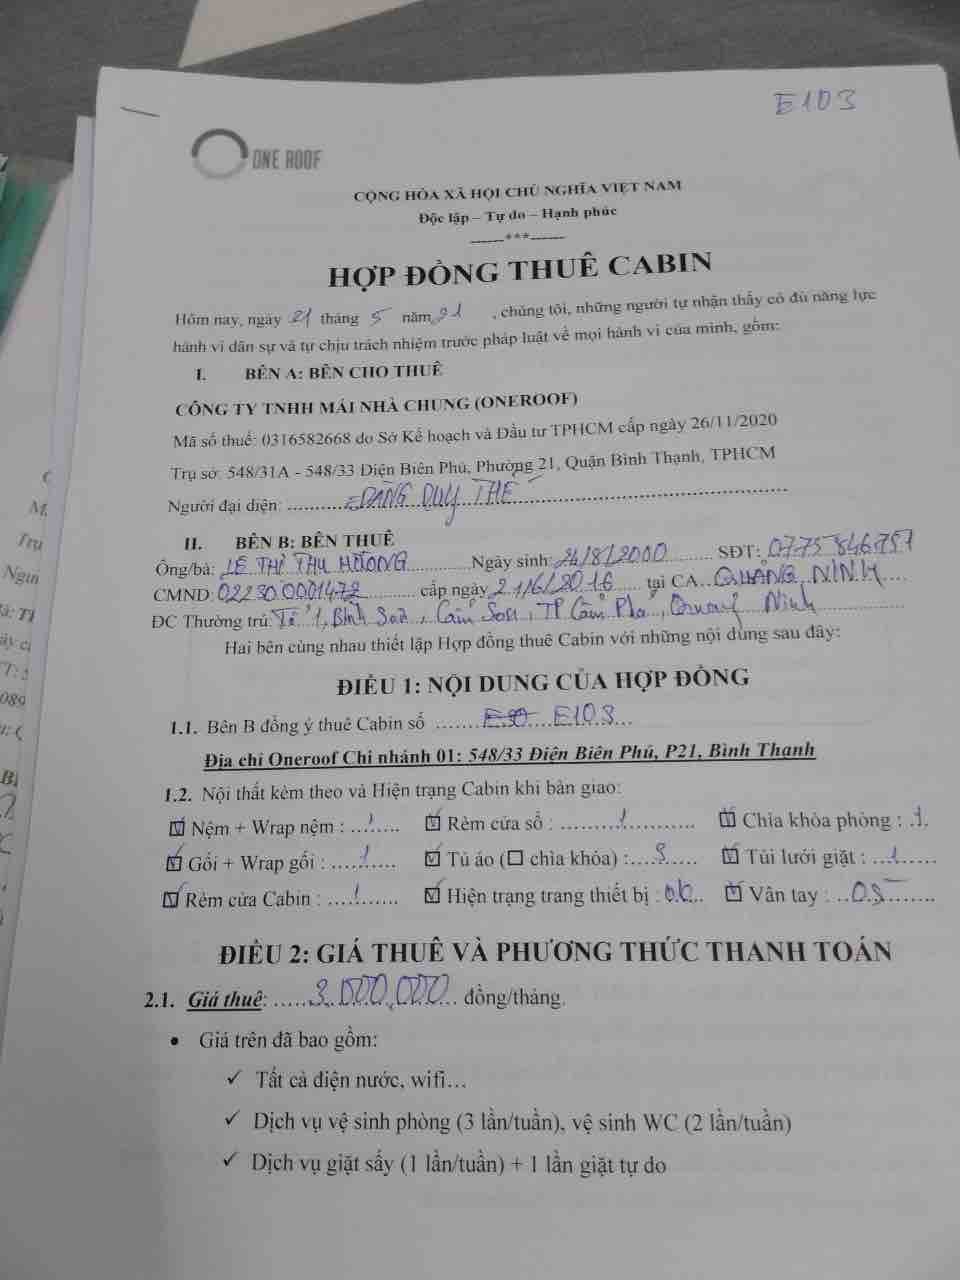 E103
ONE ROOF
CỘNG HÒA XÃ HỘI CHỦ NGHĨA VIỆT NAM
Độc lập – Tự do – Hạnh phúc
------***------
HỢP ĐỒNG THUÊ CABIN
Hôm nay, ngày 21 tháng 5 năm 21 , chúng tôi, những người tự nhận thấy có đủ năng lực
hành vi dân sự và tự chịu trách nhiệm trước pháp luật về mọi hành vi của mình, gồm:
I. BÊN A: BÊN CHO THUÊ
CÔNG TY TNHH MÁI NHÀ CHUNG (ONEROOF)
Mã số thuế: 0316582668 do Sở Kế hoạch và Đầu tư TPHCM cấp ngày 26/11/2020
Trụ sở: 548/31A - 548/33 Điện Biên Phủ, Phường 21, Quận Bình Thạnh, TPHCM
Người đại diện: ĐẶNG DUY THẾ
II. BÊN B: BÊN THUÊ
Ông/bà: LÊ THỊ THU HƯƠNG Ngày sinh: 24/8/2000 SĐT: 0775846757
CMND: 022300001472 cấp ngày 21/6/2016 tại CA: QUẢNG NINH
ĐC Thường trú: Tổ 1, Bình Sơn, Cẩm Sơn, TP Cẩm Phả, Quảng Ninh
Hai bên cùng nhau thiết lập Hợp đồng thuê Cabin với những nội dung sau đây:
ĐIỀU 1: NỘI DUNG CỦA HỢP ĐỒNG
1.1. Bên B đồng ý thuê Cabin số E103
Địa chỉ Oneroof Chi nhánh 01: 548/33 Điện Biên Phủ, P21, Bình Thạnh
1.2. Nội thất kèm theo và Hiện trạng Cabin khi bàn giao:
☑ Nệm + Wrap nệm : 1 ☑ Rèm cửa sổ : 1 ☑ Chìa khóa phòng : 1
☑ Gối + Wrap gối : 1 ☑ Tủ áo (☐ chìa khóa) : ☑ Túi lưới giặt : 1
☑ Rèm cửa Cabin : 1 ☑ Hiện trạng trang thiết bị : ok ☑ Vân tay :
ĐIỀU 2: GIÁ THUÊ VÀ PHƯƠNG THỨC THANH TOÁN
2.1. Giá thuê: 3.000.000 đồng/tháng.
• Giá trên đã bao gồm:
✓ Tất cả điện nước, wifi…
✓ Dịch vụ vệ sinh phòng (3 lần/tuần), vệ sinh WC (2 lần/tuần)
✓ Dịch vụ giặt sấy (1 lần/tuần) + 1 lần giặt tự do